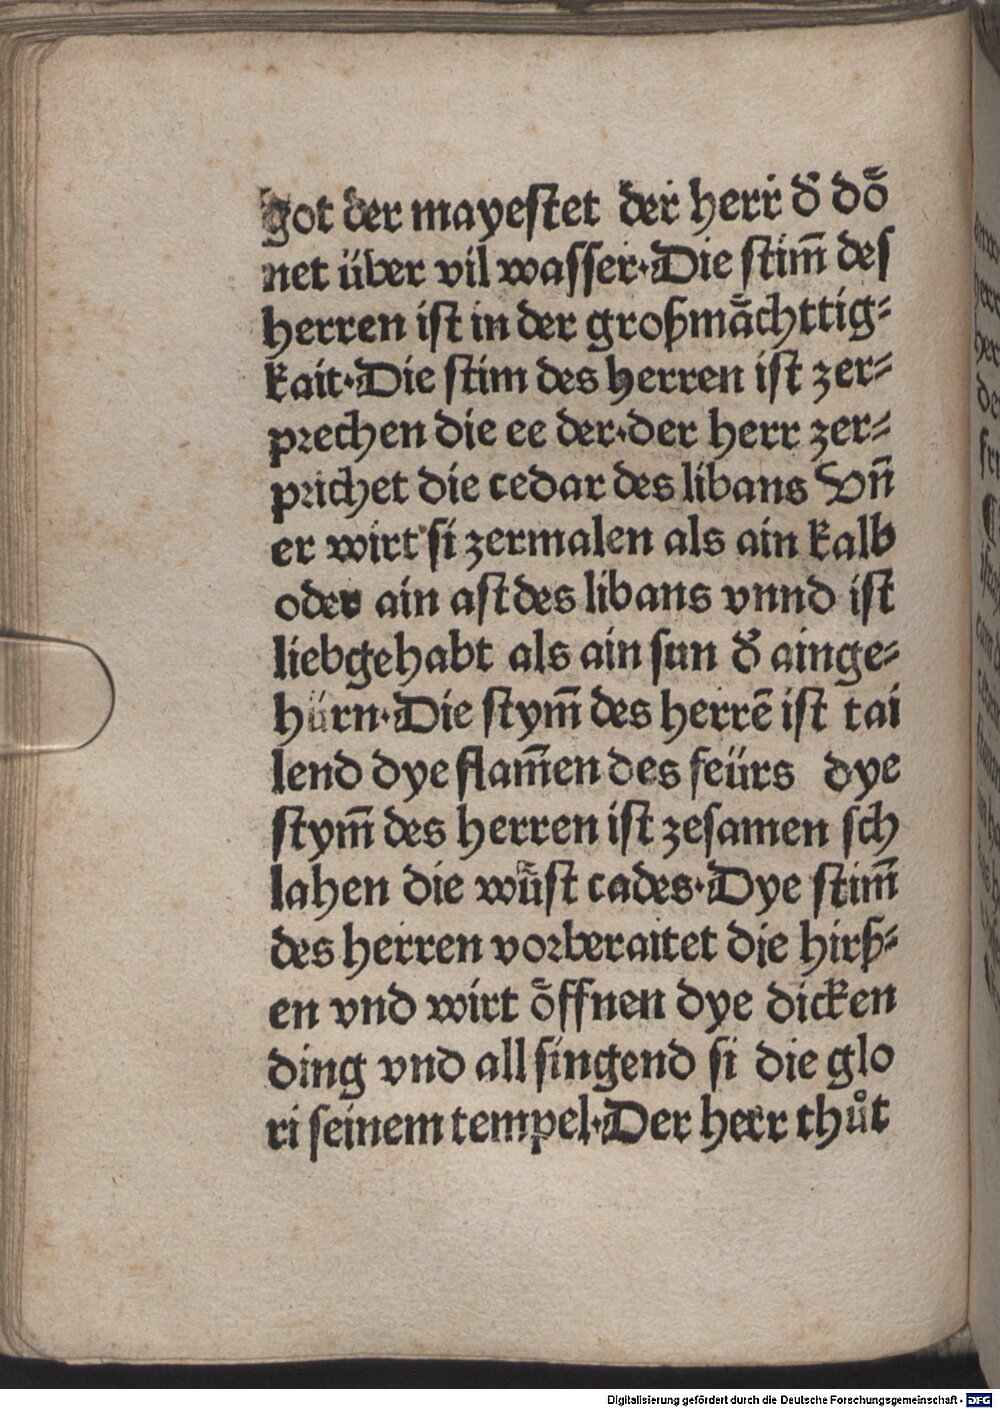 got der mayestet der herr d̄ dō
net über vil wasser·Die stim̄ des
herren ist in der großmāchttig⸗
kait·Die stim des herren ist zer⸗
prechen die ee der·der herr zer⸗
prichet die cedar des libans Vnn̄
er wirt si zermalen als ain kalb
oder ain ast des libans vnnd ist
liebgehabt als ain sun d̄ ainge⸗
hürn·Die stym̄ des herrē ist tai
lend dye flam̄en des feürs dye
stym̄ des herren ist zesamen sch
lahen die wüst cades·Dye stim̄
des herren vorberaitet die hirß⸗
en vnd wirt ōffnen dye dicken
ding vnd all singend si die glo
ri seinem tempel·Der herr thůt
Digitalisierung gefördert durch die Deutsche Forschungsgemeinschaft - DFG